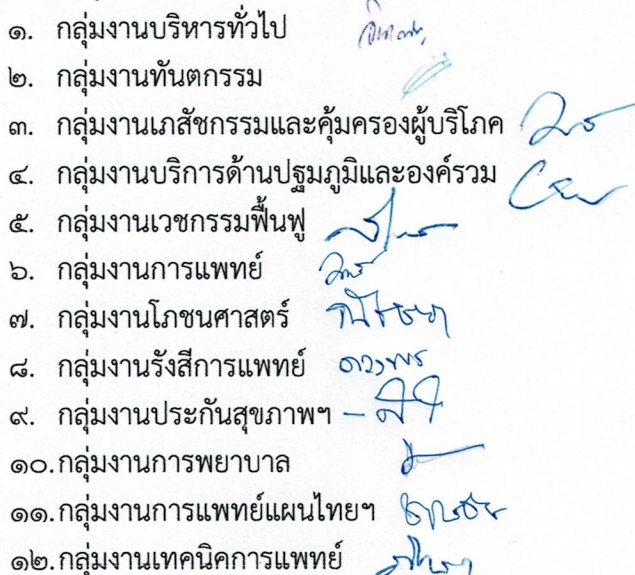 ๑. กลุ่มงานบริหารทั่วไป
๒. กลุ่มงานทันตกรรม
๓. กลุ่มงานเภสัชกรรมและคุ้มครองผู้บริโภค
๔. กลุ่มงานบริการด้านปฐมภูมิและองค์รวม
๕. กลุ่มงานเวชกรรมฟื้นฟู
๖. กลุ่มงานการแพทย์
๗. กลุ่มงานโภชนศาสตร์
๘. กลุ่มงานรังสีการแพทย์ ดวงพร
๙. กลุ่มงานประกันสุขภาพฯ –
๑๐.กลุ่มงานการพยาบาล
๑๑.กลุ่มงานการแพทย์แผนไทยฯ
๑๒.กลุ่มงานเทคนิคการแพทย์